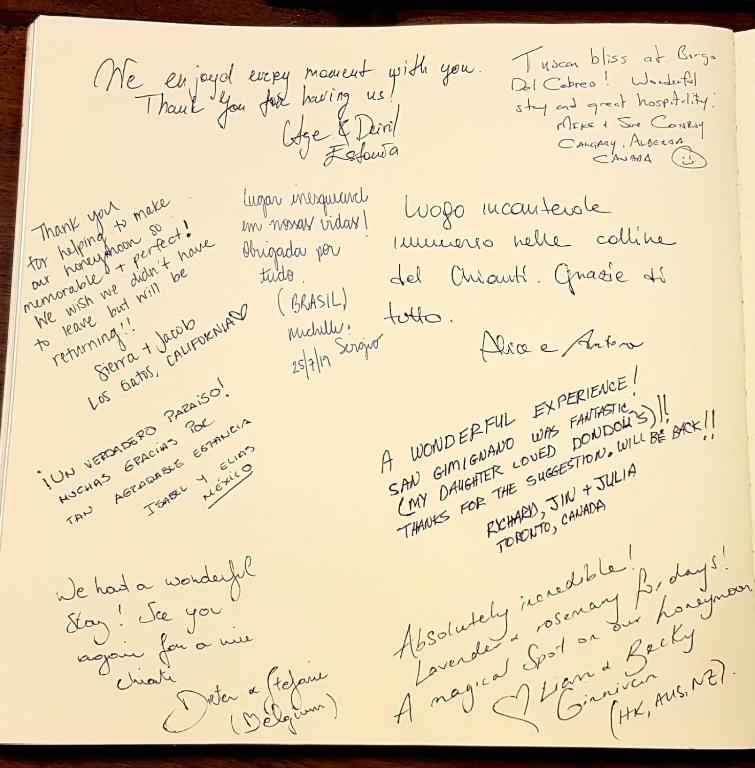 We enjoyd every moment with you.
Thank you for having us!
Age & Deivil
Estonia
Tuscan bliss at Borgo
Del Cabreo! Wonderful
stay and great hospitality!
MIKE & SUE CONROY
CALGARY, ALBERTA
CANADA
Thank you
for helping to make
our honeymoon so
memorable + perfect!
We wish we didn't have
to leave but will be
returning!!
Sierra + Jacob
LOS Gatos, CALIFORNIA
Lugar inesquecível
em nossas vidas!
Obrigada por
tudo.
(BRASIL)
Michelle.
Sergio
25/7/19
Luogo incantevole
immerso nelle colline
del Chianti. Grazie di
tutto.
Alice e Antonio
¡UN VERDADERO PARAÍSO!
MUCHAS GRACIAS POR
TAN AGRADABLE ESTANCIA
ISABEL Y ELIAS
MÉXICO
A WONDERFUL EXPERIENCE!
SAN GIMIGNANO WAS FANTASTIC
(MY DAUGHTER LOVED DONDOLI'S)!!
THANKS FOR THE SUGGESTION. WILL BE BACK!!
RICHARD, JIN + JULIA
TORONTO, CANADA
We had a wonderful
stay! See you
again for a nice
chiati
Dieter & Stefanie
(Belgium)
Absolutely incredible!
Lavender & rosemary for days!
A magical spot on our honeymoon
Liam & Becky
Ginnivan
(HK, AUS, NZ).